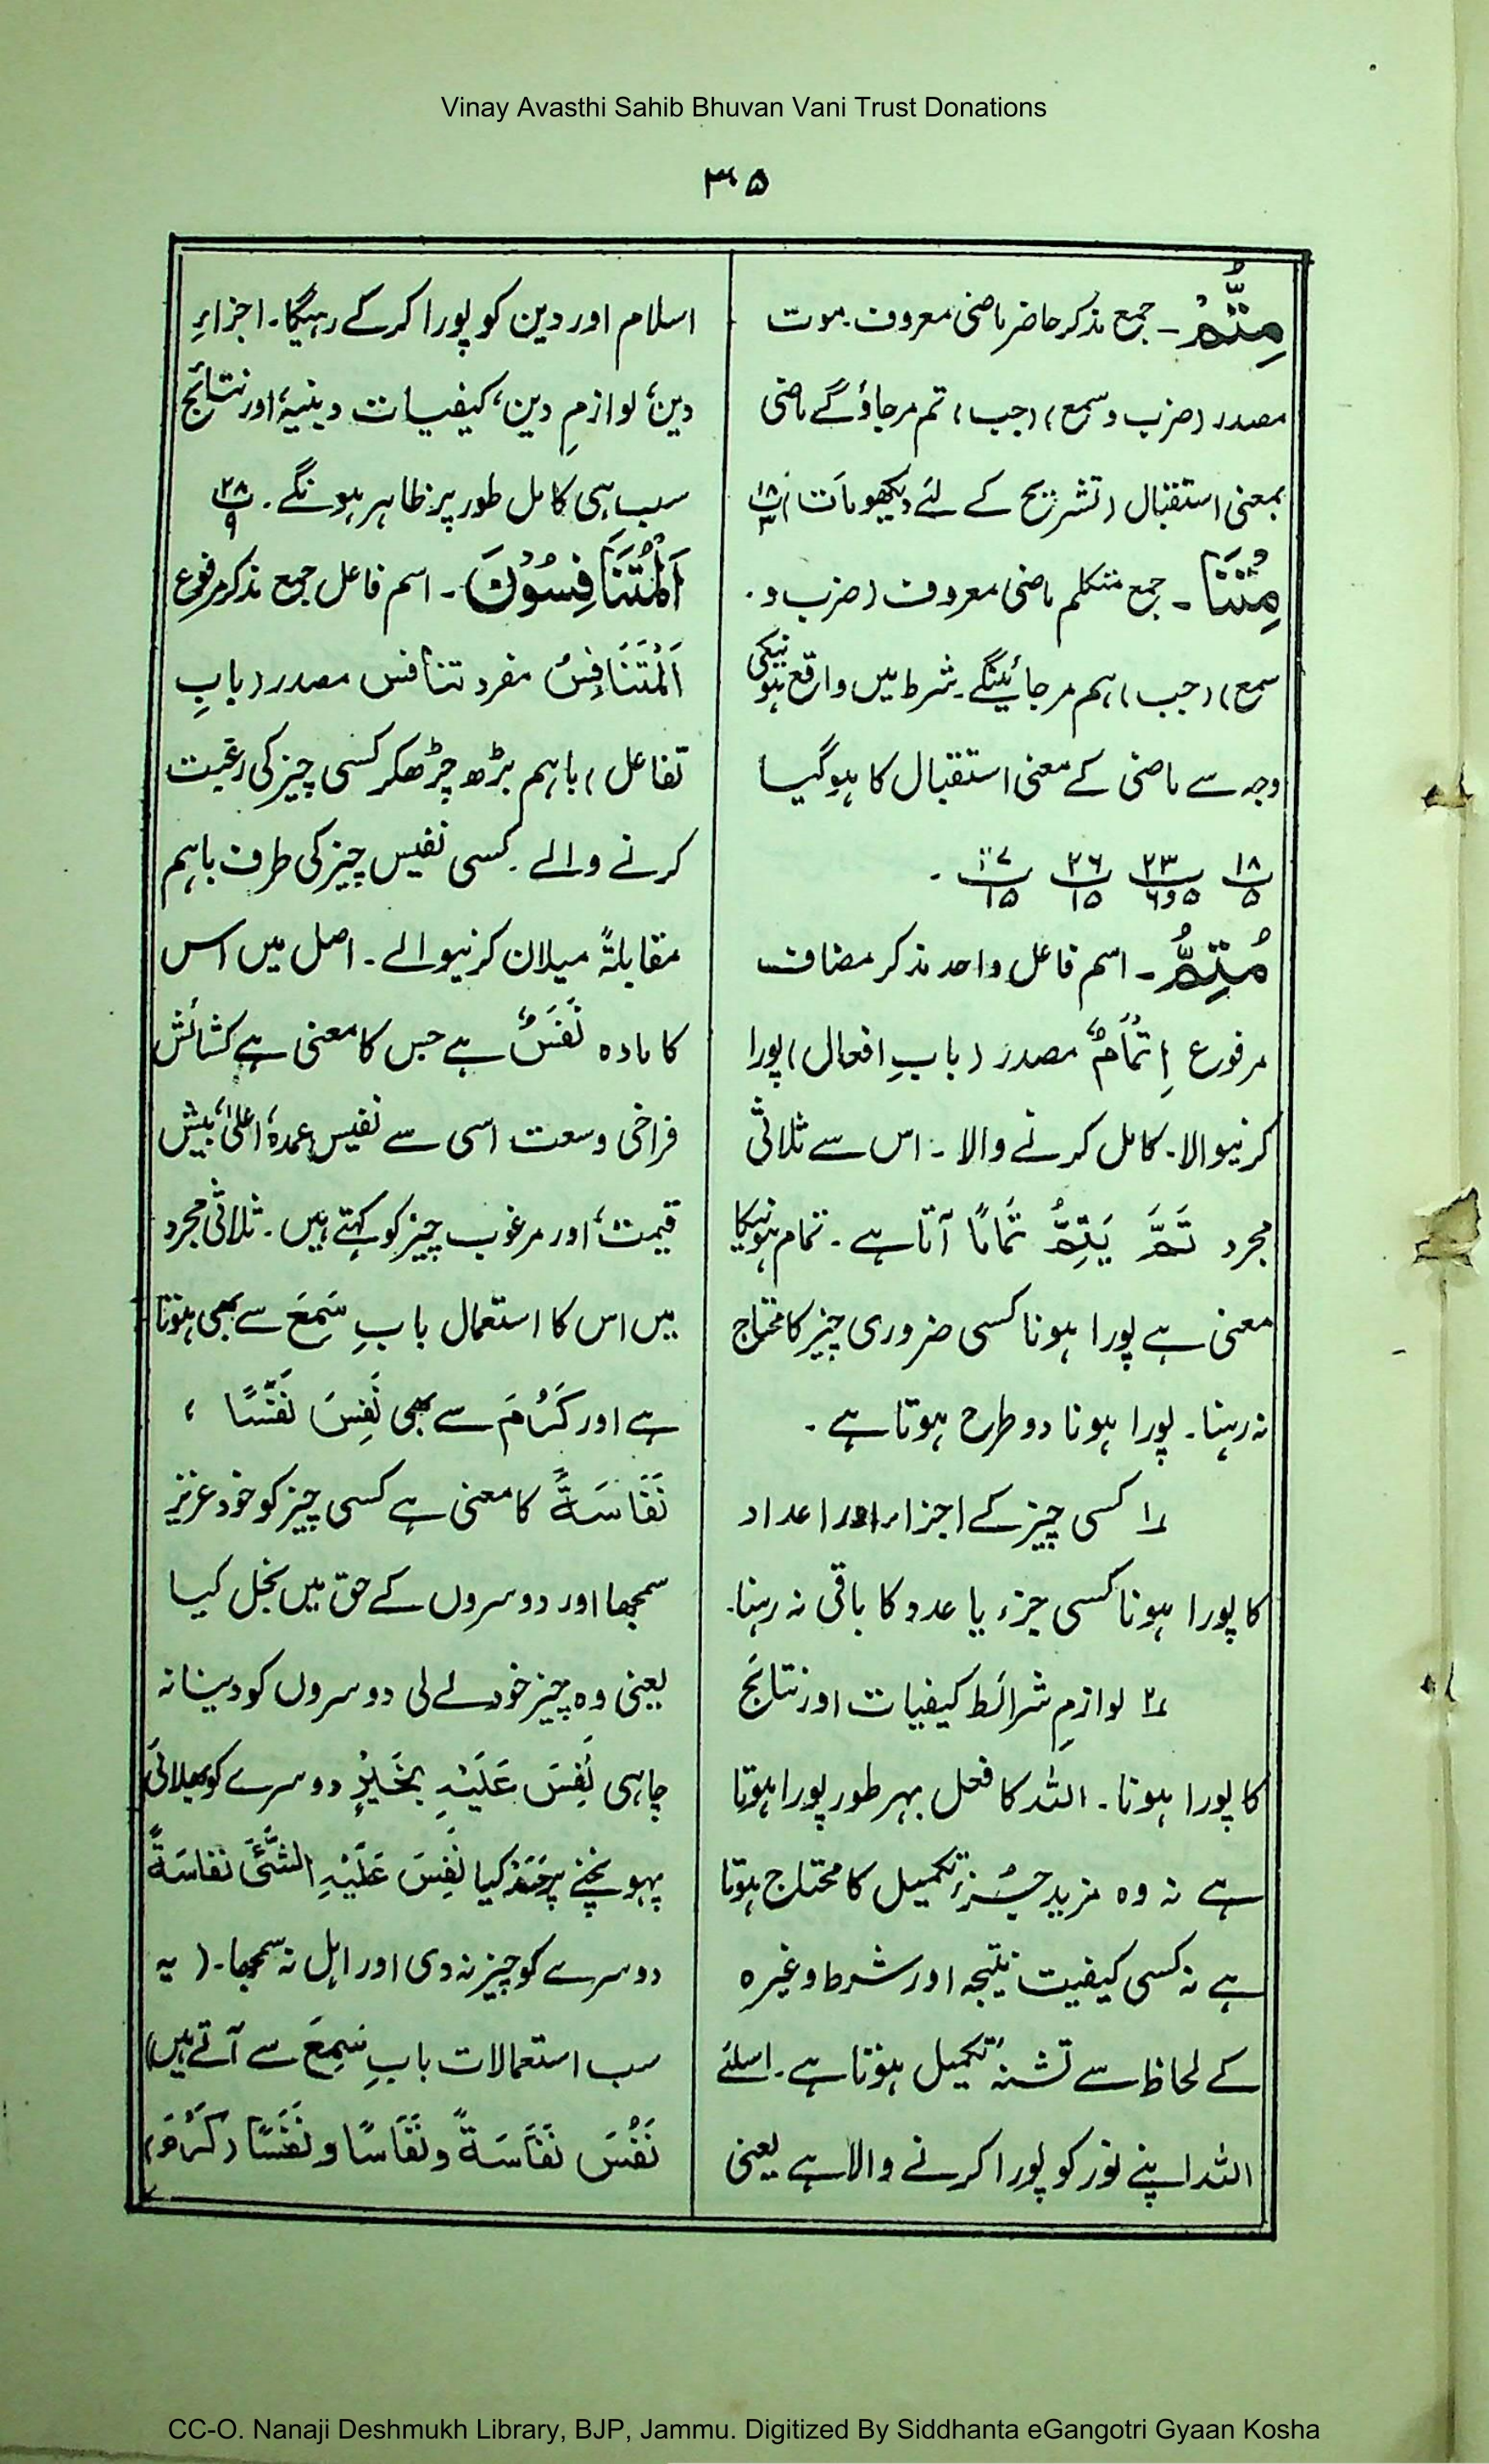 Vinay Avasthi Sahib Bhuvan Vani Trust Donations
۳۰۵
مِتُّمْ۔ جمع مذکر حاضر ماضی معروف۔ موت
مصدر (ضرب و سمع) (جب) تم مرجاؤگے ماضی
بمعنی استقبال (تشریح کے لئے دیکھو مَاتَ) پ۱۸/۳
مِتْنَا۔ جمع متکلم ماضی معروف (ضرب و۔
سمع) (جب) ہم مرجائینگے۔ شرط میں واقع ہونیکی
وجہ سے ماضی کے معنی استقبال کا ہوگیا
پ۱۸/۵ پ۲۳/۵و۶ پ۲۶/۱۵ پ۲۷/۱۵ ۔
مُتِمُّ۔ اسم فاعل واحد مذکر مضاف
مرفوع اِتْمَامٌ مصدر (بابِ افعال) پورا
کرنیوالا۔ کامل کرنے والا۔ اس سے ثلاثی
مجرد تَمَّ یَتِمُّ تَمَامًا آتا ہے۔ تمام ہونیکا
معنی ہے پورا ہونا کسی ضروری چیز کا محتاج
نہ رہنا۔ پورا ہونا دو طرح ہوتا ہے۔
۱ کسی چیز کے اجزاء اور اعداد
کا پورا ہونا کسی جزء یا عدد کا باقی نہ رہنا۔
۲ لوازمِ شرائط کیفیات اور نتائج
کا پورا ہونا۔ اللہ کا فعل بہر طور پورا ہوتا
ہے نہ وہ مزید جزءِ تکمیل کا محتاج ہوتا
ہے نہ کسی کیفیت نتیجہ اور شرط وغیرہ
کے لحاظ سے تشنۂ تکمیل ہوتا ہے۔ اسلئے
اللہ اپنے نور کو پورا کرنے والا ہے یعنی
اسلام اور دین کو پورا کرکے رہیگا۔ اجزاءِ
دین، لوازمِ دین، کیفیات دینیہ، اور نتائج
سب ہی کامل طور پر ظاہر ہونگے۔ پ۲۸/۹
اَلْمُتَنَافِسُوْنَ۔ اسم فاعل جمع مذکر مرفوع
اَلْمُتَنَافِسُ مفرد تنافس مصدر (بابِ
تفاعل) باہم بڑھ چڑھکر کسی چیز کی رغبت
کرنے والے۔ کسی نفیس چیز کی طرف باہم
مقابلۃً میلان کرنیوالے۔ اصل میں اس
کا مادہ نَفَسٌ ہے جس کا معنی ہے کشائش
فراخی وسعت اسی سے نفیس، عمدہ، اعلیٰ، بیش
قیمت، اور مرغوب چیز کو کہتے ہیں۔ ثلاثی مجرد
میں اس کا استعمال بابِ سَمِعَ سے بھی ہوتا
ہے اور کَرُمَ سے بھی نَفِسَ نَفَسًا ،
نَفَاسَةً کا معنی ہے کسی چیز کو خود عزیز
سمجھا اور دوسروں کے حق میں بخل کیا
یعنی وہ چیز خود لے لی دوسروں کو دینا نہ
چاہی نَفِسَ عَلَیْہِ بِخَیْرٍ دوسرے کو بھلائی
پہونچنے پر حسد کیا نَفِسَ عَلَیْہِ الشَّئَ نفاسَةً
دوسرے کو چیز نہ دی اور اہل نہ سمجھا۔ (یہ
سب استعمالات بابِ سَمِعَ سے آتے ہیں)
نَفُسَ نَفَاسَةً و نَفَاسًا و نَفَسًا (کَرُمَ)
CC-O. Nanaji Deshmukh Library, BJP, Jammu. Digitized By Siddhanta eGangotri Gyaan Kosha